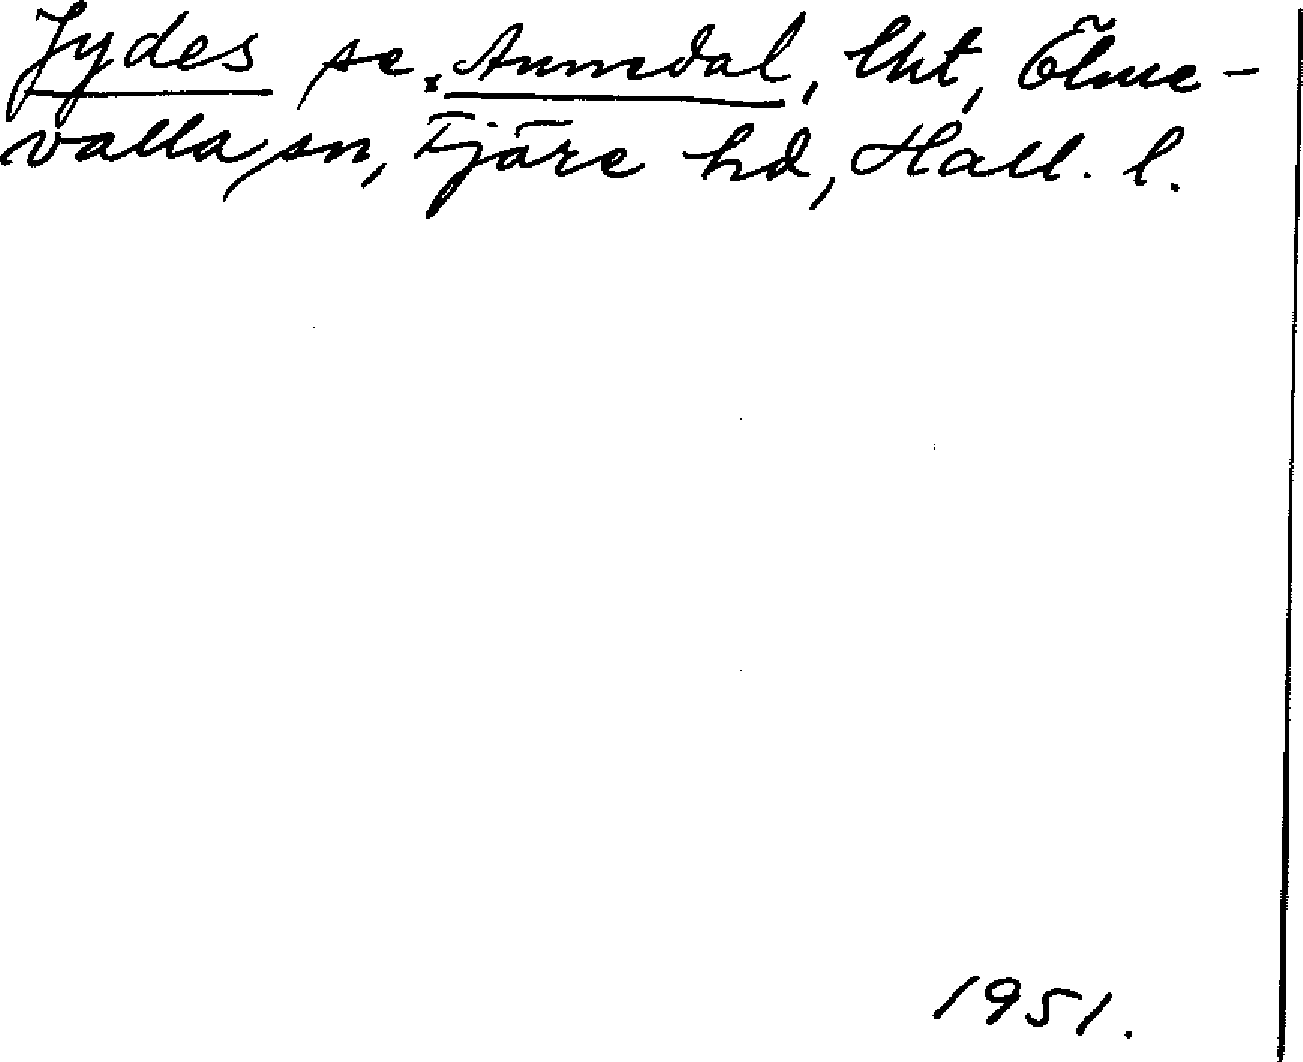 Jydes se Annedal, lht, Ölme-
valla sn, Fjäre hd, Hall. l.
1951.